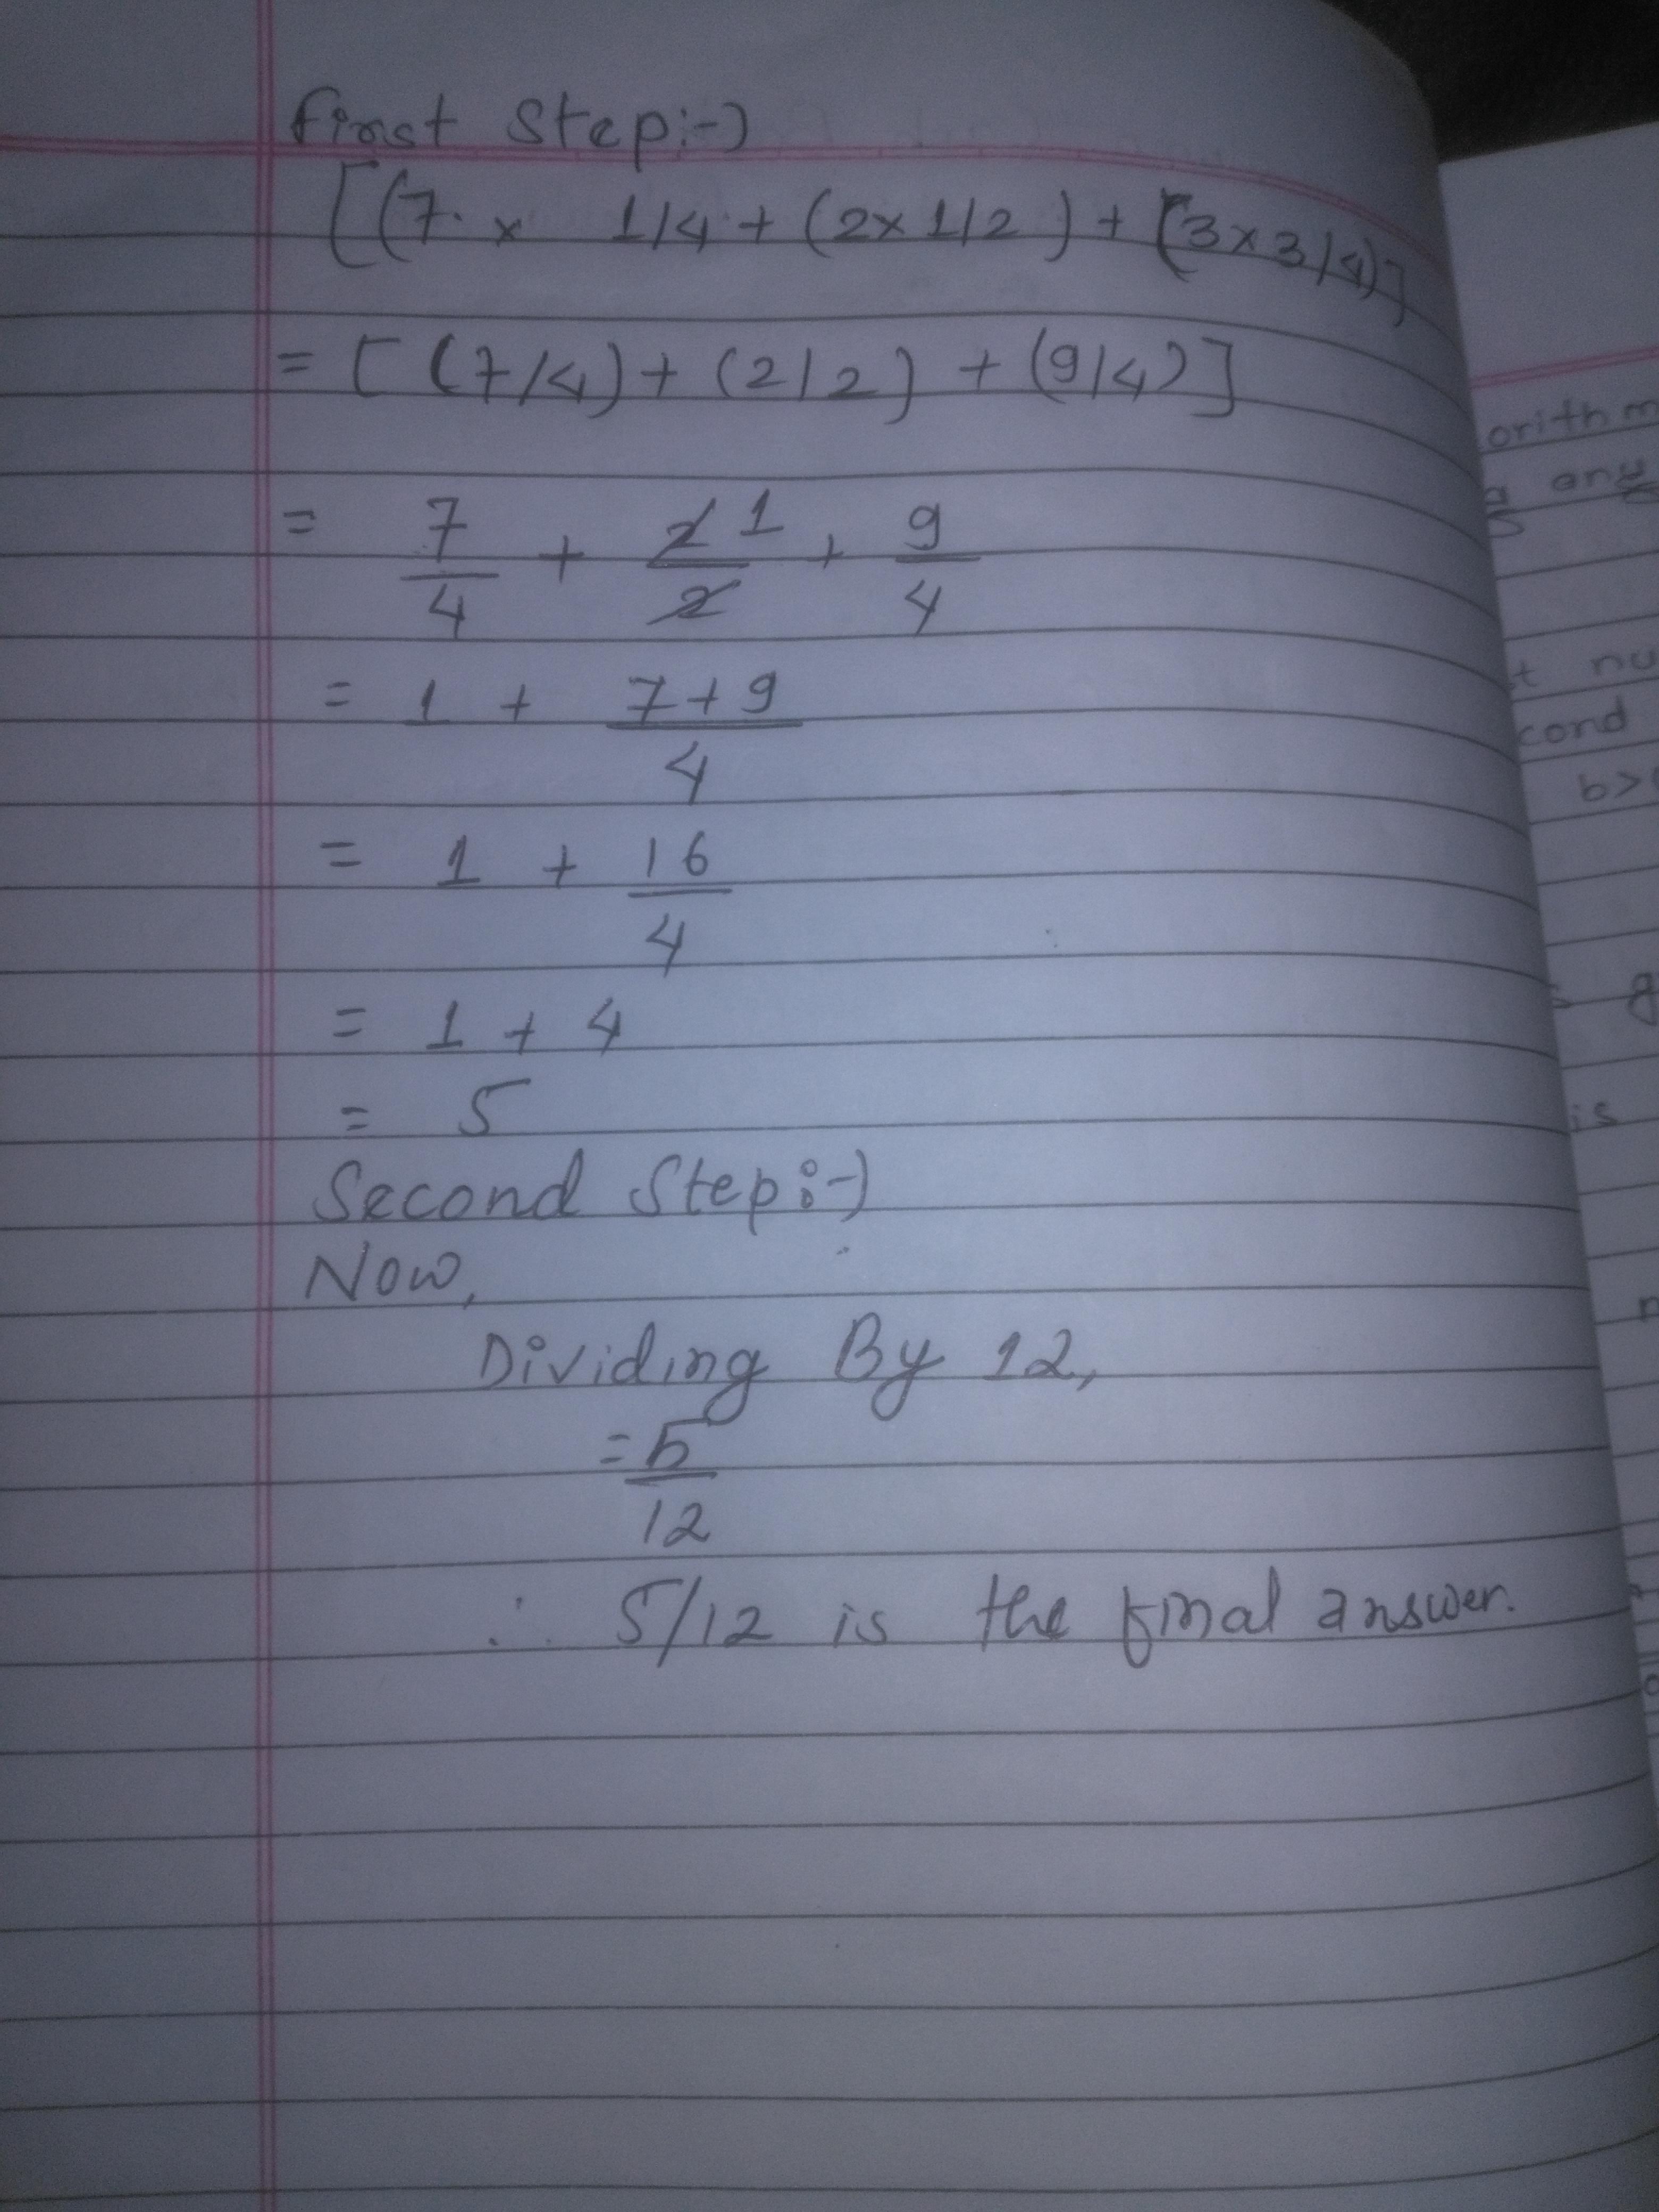 First Step:-)
[(7. x 1/4 + (2x1/2) + (3x3/4)]
= [(7/4) + (2/2) + (9/4)]
= 7/4 + 2/2 1 + 9/4
= 1 + 7+9/4
= 1 + 16/4
= 1 + 4
= 5
Second Step:-)
Now,
Dividing By 12,
= 5/12
∴ 5/12 is the final answer.
orithm
any
nu
cond
b>
is